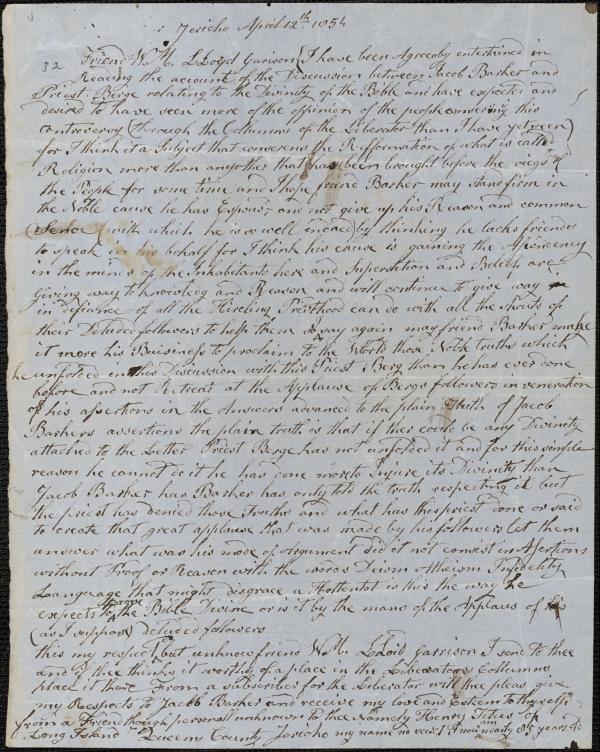 Jericho April 12th 1854
32
Friend Wm LLoyd Garison I have been Agreeaby entertained in
Reading the account of the Discussion between Jacob Barker and
Priest Berge relating to the Divinity of the Bible and have expected and
desired to have seen more of the oppinion of the people conserning this
controversy (through the Collumns of the Liberator than I have yet seen)
for I think it a Subject that conserns the Refformation of what is called
Religion more than anyother that has been brought before the viegs of
the People for some time and I hope friend Barker may stand firm in
the Noble cause he has Espous'd and not give up his Reason and common
Sence (with which he is so well indued) by thinking he lacks friends
to speak in his behalf for I think his cause is gaining the Asendency
in the minds of the Inhabitants here and Superstition and Beliefs are
giving way to knowledg and Reason and will continue to give way
in defiance of all the Hireling Priesthood can do with all the shouts of
their Deluded followers to help them I say again may friend Barker make
it more his Buisiness to proclaim to the World those Noble truths which
he unfolded in this Discussion with this Priest Berg than he has ever done
before and not Retreat at the Applause of Bergs followers in veneration
of his assertions in the Answers advanced to the plain truth of Jacob
Barkers assertions the plain truth is that if ther could be any Divinity
attached to the Letter Priest Berge has not unfolded it and for this simple
reason he cannot do it he has done more to Injure its Divinity than
Jacob Barker has Barker has only told the truth respecting it but
the priest has denied those Truths and what has the priest done or said
to create that great applause that was made by his followers let them
answer what was his mode of Argument did it not consist in Asertions
without Proof or Reason with the words Deism Atheism Infidelity
Language that might disgrace a Hottentot is this the way he
expects to prove the Bible Divine or is it by the mans of the Applaus of his
(as I suppose) deluded followers
this my respect,d but unknow friend Wm LLoid Garrison I send to thee
and if thee thinks it worthy of a place in the Liberators Collumns
place it there From a subscriber for the Liberator will thee pleas give
my Respects to Jacob Barker and receive my love and Esteem to thy self
from a Friend though personall unknown to thee Namely Henry Titus of
Long Island Queens County Jericho my name no veris I am in nearly 85 years old